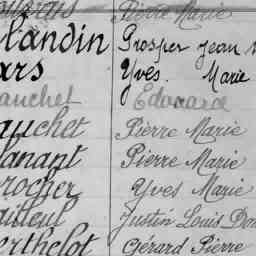 Pierre Marie
landin Prosper Jean
ars Yves. Marie
auchet Edouard
auchet Pierre Marie
anant Pierre Marie
rocher Yves Marie
ailleul Justin Louis
erthelot Gérard Pierre